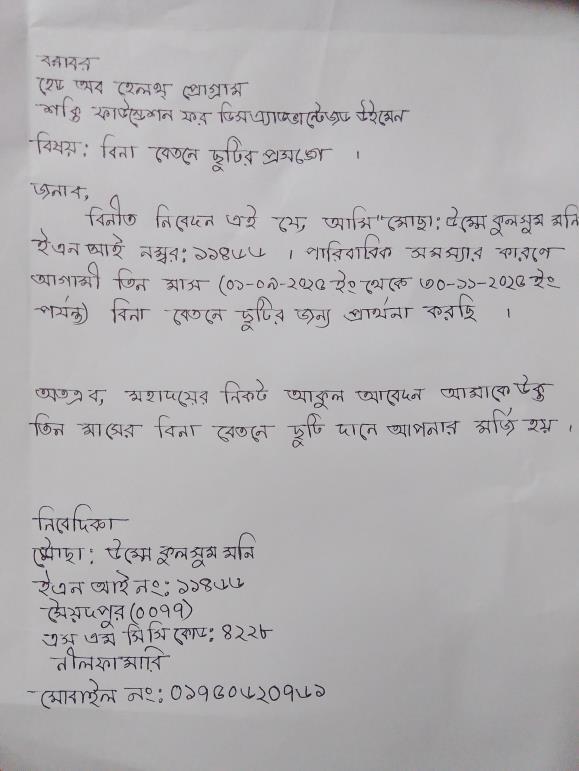 বরাবর
হেড অব হেলথ্ প্রোগ্রাম
শক্তি ফাউন্ডেশন ফর ডিসএ্যাডভান্টেজড উইমেন
বিষয়: বিনা বেতনে ছুটির প্রসঙ্গে ।
জনাব,
বিনীত নিবেদন এই যে, আমি "মোছা: উম্মে কুলসুম মনি
ইএন আই নম্বর: ১১৪৬৬ । পারিবারিক সমস্যার কারণে
আগামী তিন মাস (০১-০৯-২০২৫ ইং থেকে ৩০-১১-২০২৫ ইং
পর্যন্ত) বিনা বেতনে ছুটির জন্য প্রার্থনা করছি ।
অতএব, মহাদয়ের নিকট আকুল আবেদন আমাকে উক্ত
তিন মাসের বিনা বেতনে ছুটি দানে আপনার মর্জি হয় ।
নিবেদিকা
মোছা: উম্মে কুলসুম মনি
ইএন আই নং: ১১৪৬৬
সৈয়দপুর (০০৭৭)
এস এস সিসি কোড: ৪২২৮
নীলফামারি
মোবাইল নং: